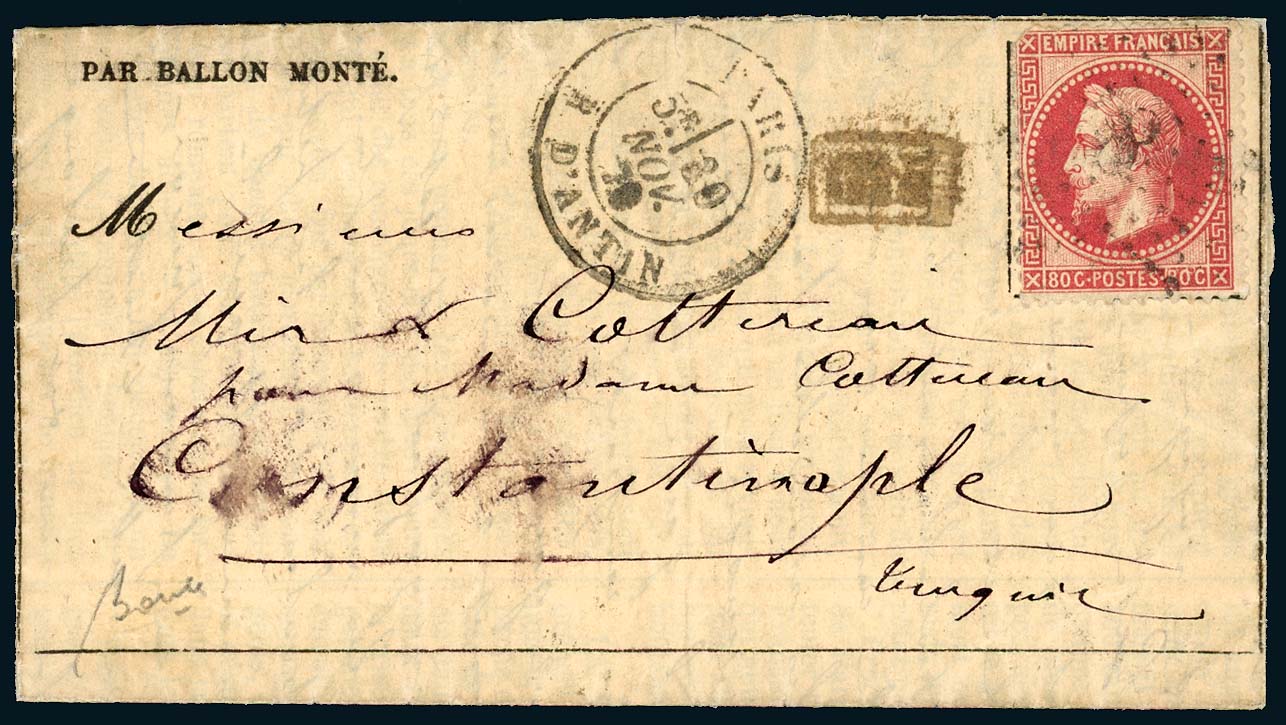 PAR BALLON MONTÉ.
PARIS
R. D'ANTIN
5E
20
NOV.
70
EMPIRE FRANÇAIS
80C-POSTES-80C
Messieurs
Mir & Cottereau
pour Madame Cottereau
Constantinople
turquie